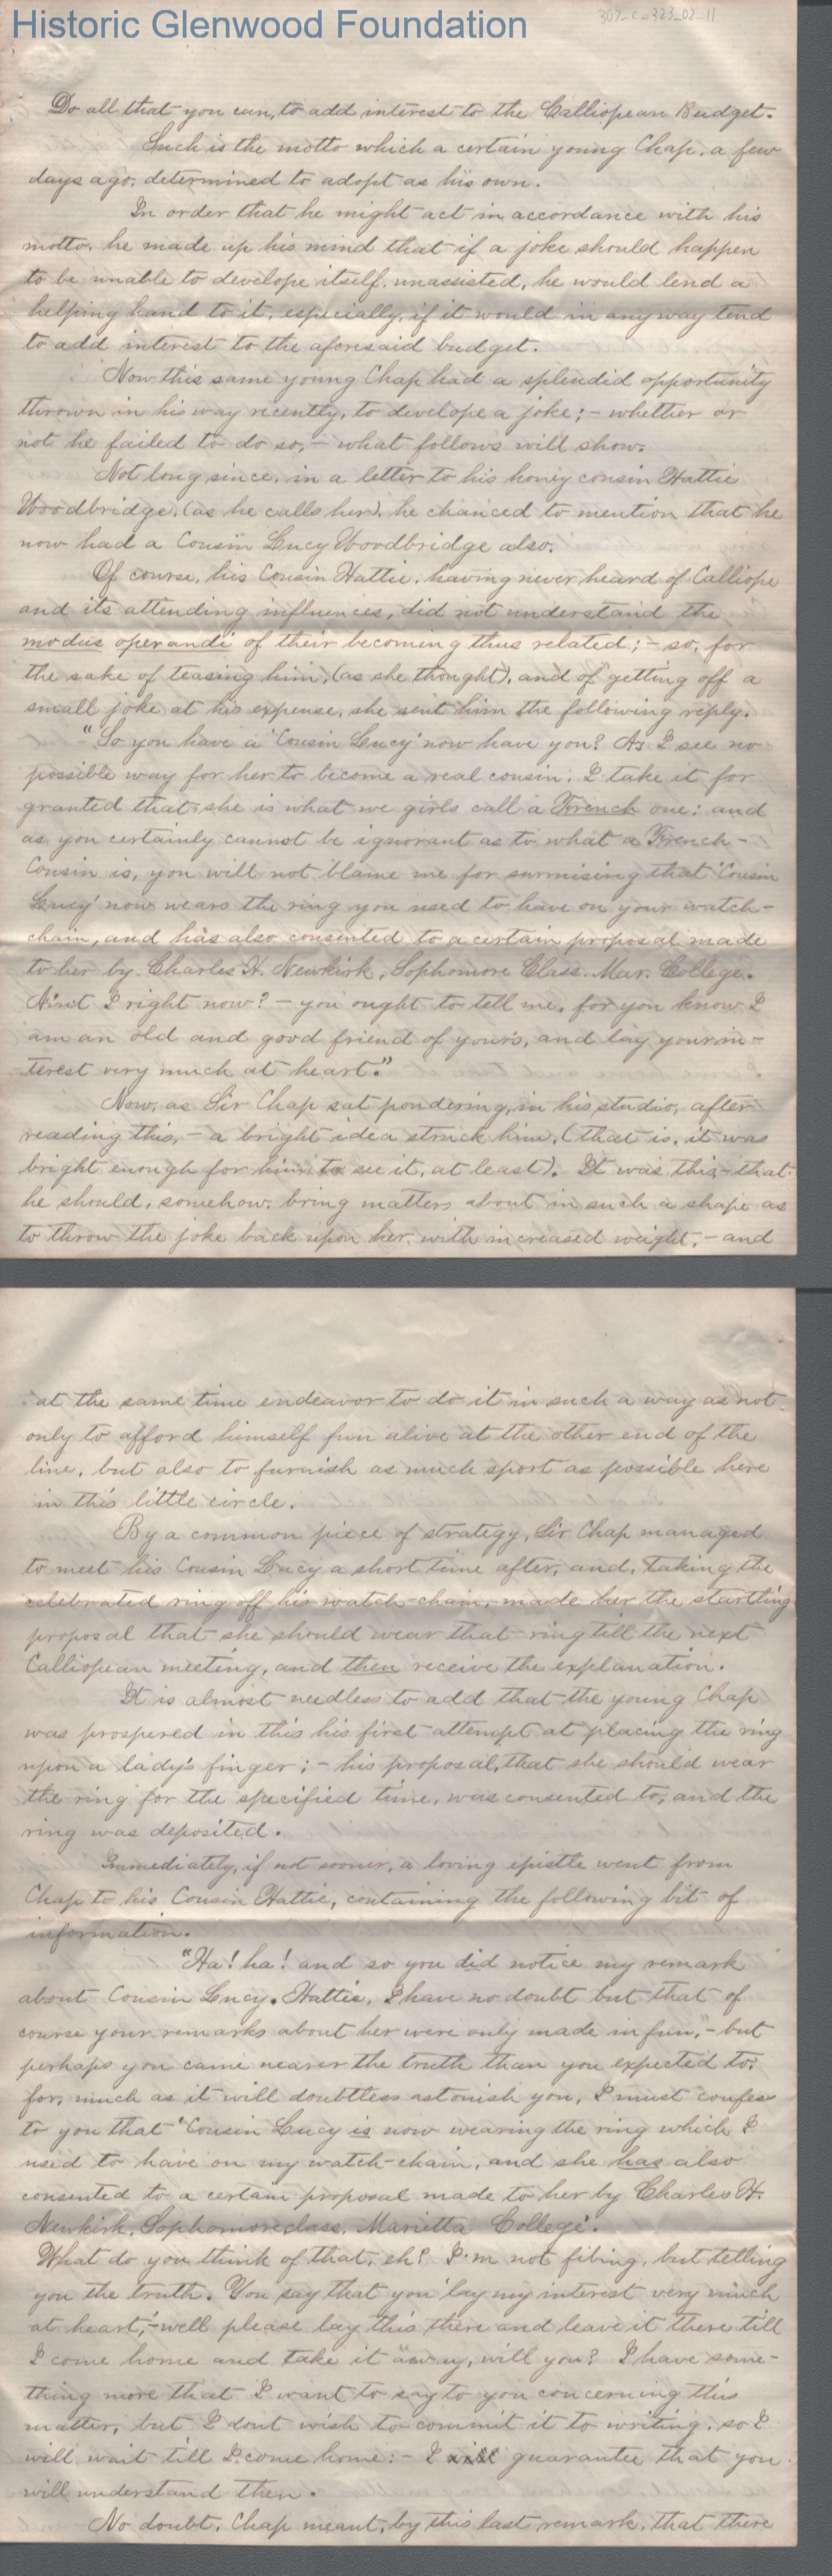 Historic Glenwood Foundation
307-C-323_02_11
Do all that you can, to add interest to the Calliopean Budget.
Such is the motto which a certain young Chap, a few
days ago, determined to adopt as his own.
In order that he might act in accordance with his
motto, he made up his mind that if a joke should happen
to be unable to develope itself, unassisted, he would lend a
helping hand to it, especially, if it would in any way tend
to add interest to the aforesaid budget.
Now this same young Chap had a splendid opportunity
thrown in his way recently, to develope a joke;- whether or
not he failed to do so,- what follows will show.
Not long since, in a letter to his honey cousin Hattie
Woodbridge, (as he calls her), he chanced to mention that he
now had a Cousin Lucy Woodbridge also.
Of course, his Cousin Hattie, having never heard of Calliope
and its attending influences, did not understand the
modus operandi of their becoming thus related;- so, for
the sake of teasing him, (as she thought), and of getting off a
small joke at his expense, she sent him the following reply.
"So you have a 'Cousin Lucy' now have you? As I see no
possible way for her to become a real cousin, I take it for
granted that she is what we girls call a French one; and
as you certainly cannot be ignorant as to what a French-
Cousin is, you will not blame me for surmising that 'Cousin
Lucy' now wears the ring you used to have on your watch-
chain, and has also consented to a certain proposal made
to her by Charles H. Newkirk, Sophomore Class. Mar. College.
Ain't I right now?- you ought to tell me, for you know I
am an old and good friend of your's, and lay your in-
terest very much at heart."
Now, as Sir Chap sat pondering, in his studio, after
reading this,- a bright idea struck him, (that is, it was
bright enough for him to see it, at least). It was this,- that
he should, somehow, bring matters about in such a shape as
to throw the joke back upon her, with increased weight,- and
at the same time endeavor to do it in such a way as not
only to afford himself fun alive at the other end of the
line, but also to furnish as much sport as possible here
in this little circle.
By a common piece of strategy, Sir Chap managed
to meet his Cousin Lucy a short time after, and, taking the
celebrated ring off his watch-chain, made her the startling
proposal that she should wear that ring till the next
Calliopean meeting, and then receive the explanation.
It is almost needless to add that the young Chap
was prospered in this his first attempt at placing the ring
upon a lady's finger;- his proposal, that she should wear
the ring for the specified time, was consented to, and the
ring was deposited.
Immediately, if not sooner, a loving epistle went from
Chap to his Cousin Hattie, containing the following bit of
information.
"Ha! ha! and so you did notice my remark
about Cousin Lucy. Hattie, I have no doubt but that of
course your remarks about her were only made in fun,- but
perhaps you came nearer the truth than you expected to,
for, much as it will doubtless astonish you, I must confess
to you that 'Cousin Lucy is now wearing the ring which I
used to have on my watch-chain, and she has also
consented to a certain proposal made to her by Charles H.
Newkirk, Sophomore class, Marietta College'.
What do you think of that, eh? I'm not fibing, but telling
you the truth. You say that you 'lay my interest very much
at heart,'- well please lay this there and leave it there till
I come home and take it away, will you? I have some-
thing more that I want to say to you concerning this
matter, but I dont wish to commit it to writing, so I
will wait till I come home:- I guarantee that you
will understand then.
No doubt, Chap meant, by this last remark, that there